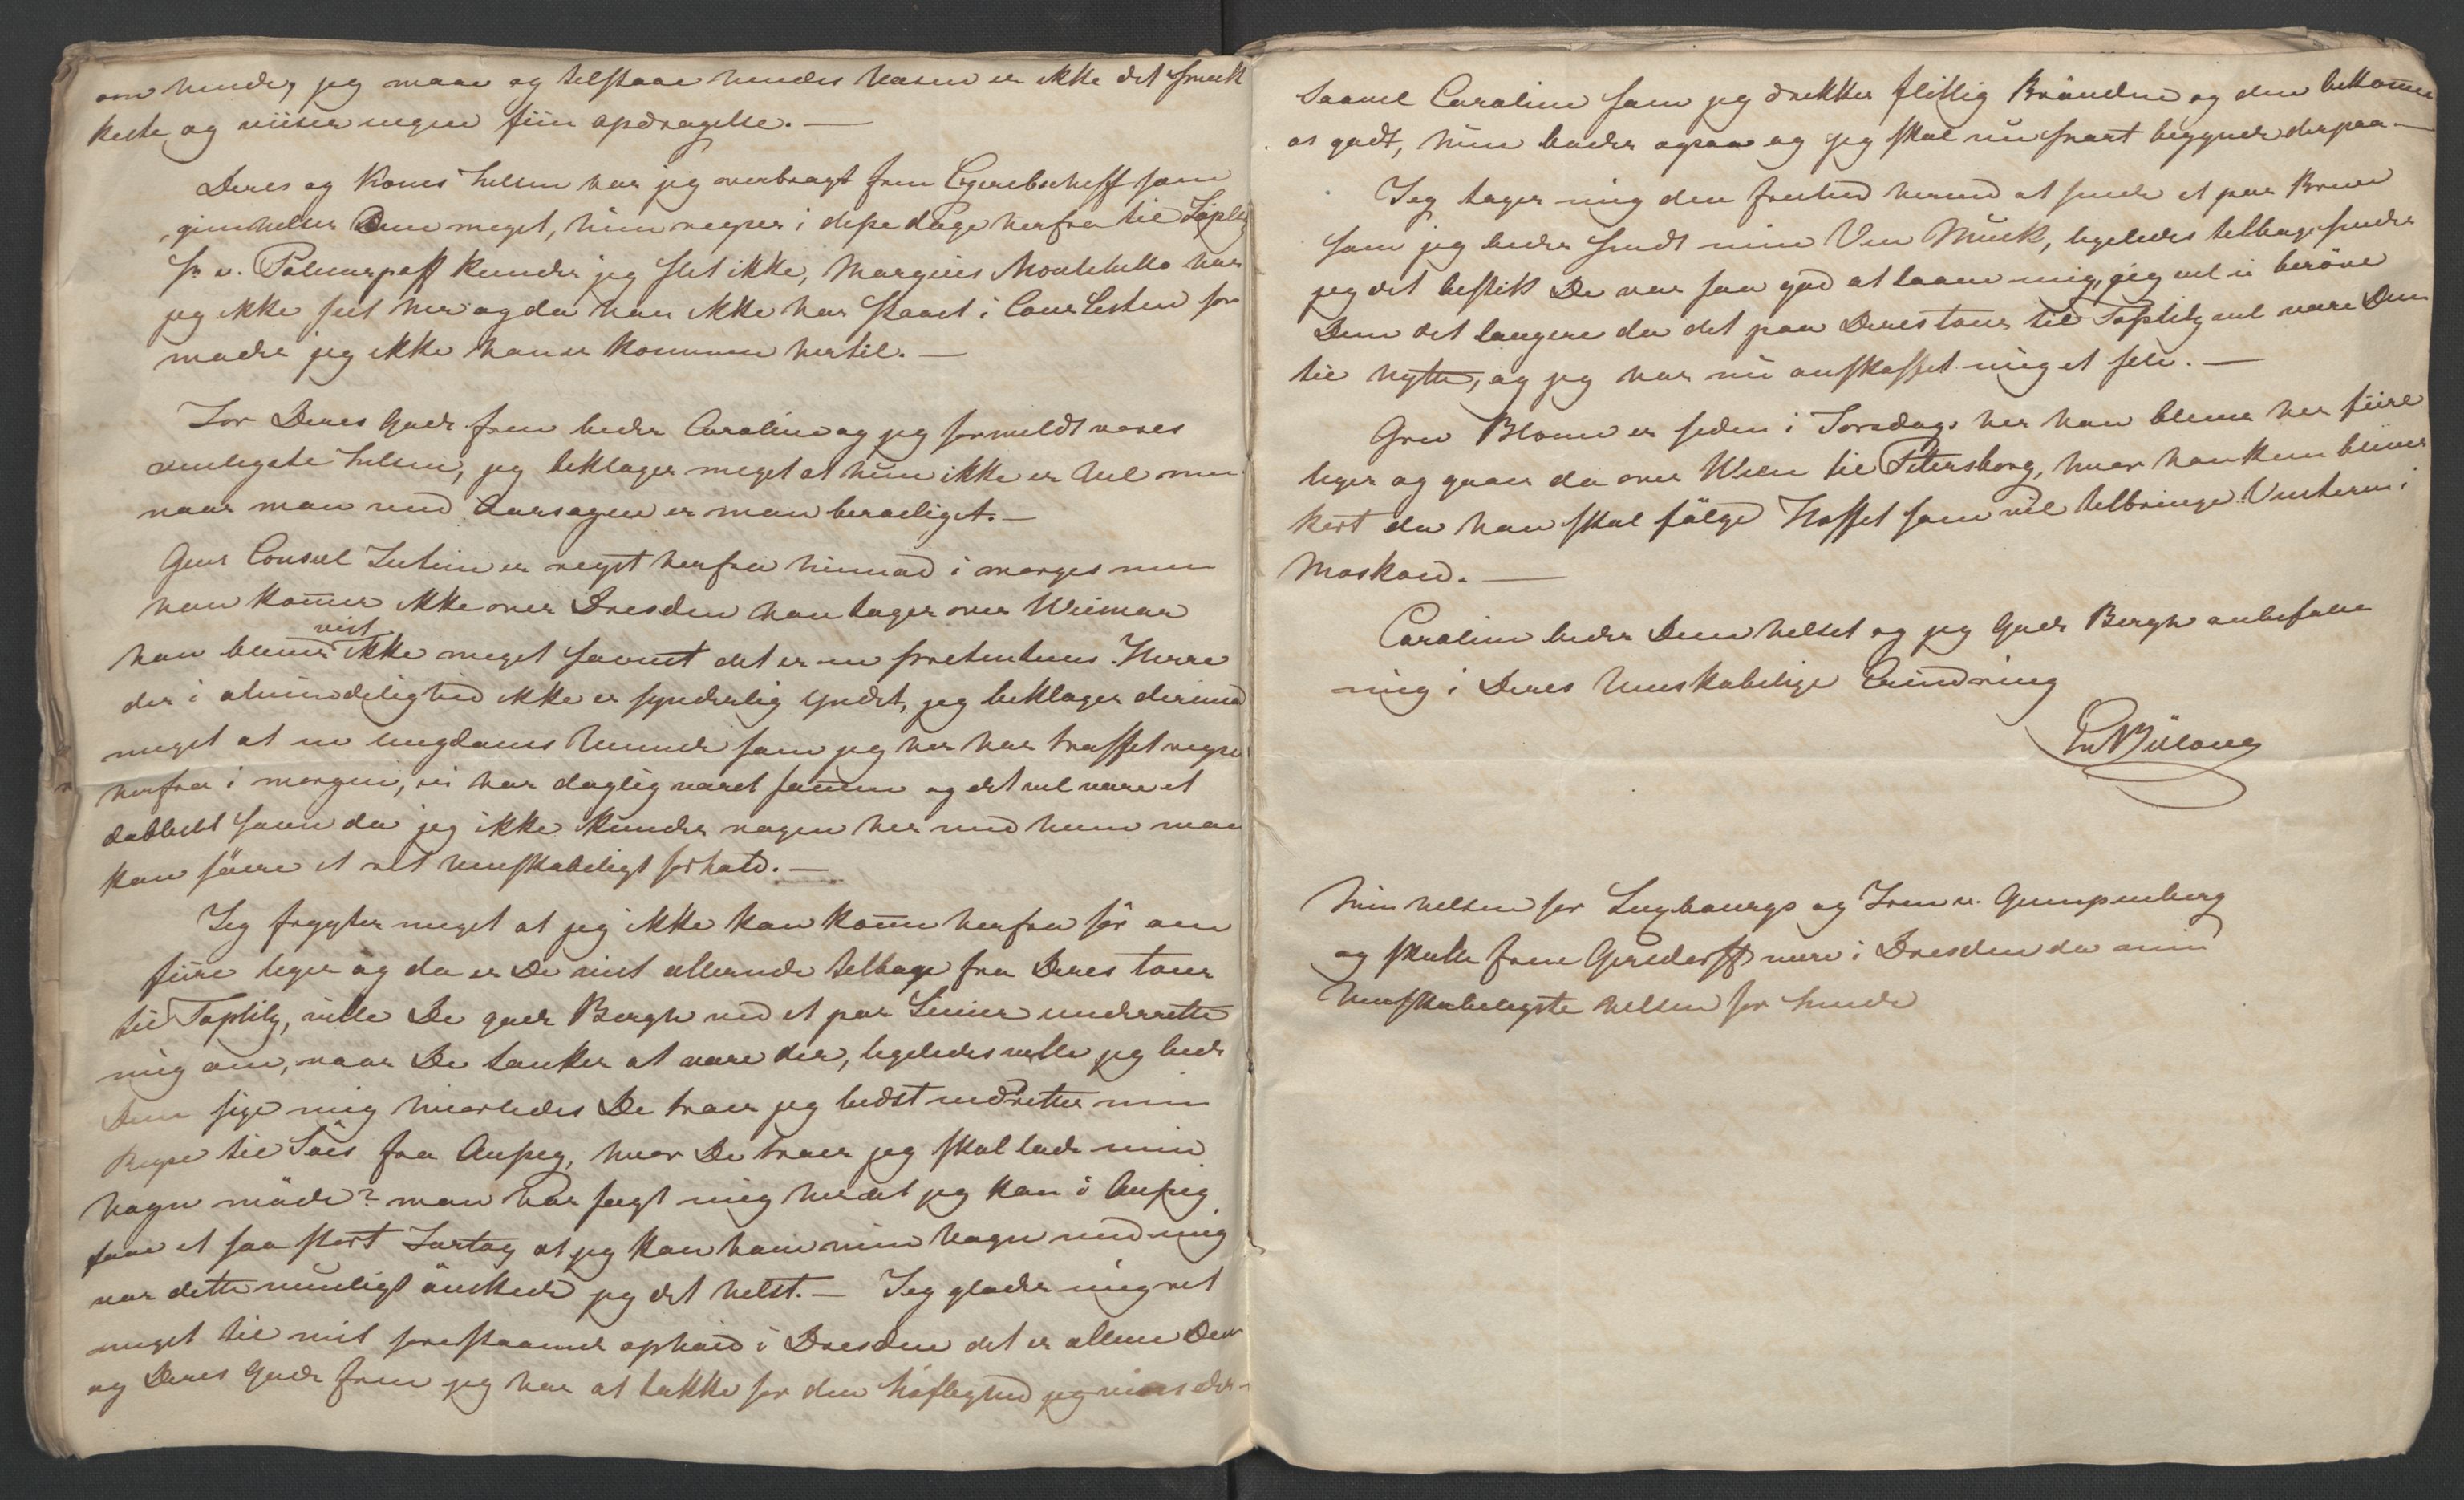 om hende, jeg maae og tilstaae hendes Væsen er ikke det smuk
keste og viiser ingen fiin opdragelse. —
Deres og Kones hilsen har jeg overbragt frem som
gienhilser Dem meget, hun reyser i disse dage herfra til Töplitz
Fr v. kender jeg slet ikke, Marquis har
jeg ikke seet her og da han ikke har staaet i Cour Listen for
moder jeg ikke han er kommen hertil. —
For Deres gode frue beder Caroline og jeg formeldt vores
venligste hilsen, jeg beklager meget at hun ikke er vel men
naar man veed Aarsagen er man beroeliget. —
Gene Consul er reyst herfra hiemad i morges men
han kom̄er ikke over Dresden han tager over Weimar
han bliver vist ikke meget savnet det er en pretentieus Herre
der i almindelighed ikke er synderlig yndet, jeg beklager derimod
meget at en ungdoms Veninde som jeg her har truffet reyser
herfra i morgen, vi har daglig været sam̄en og det vil være et
dobbelt savn da jeg ikke kender nogen her med hvem man
kan före et ret venskabeligt forhold. —
Jeg frygter meget at jeg ikke kan kom̄e herfra för om
fiire uger og da er De vist allerede tilbage fra Deres tour
til Toplitz, ville De gode Bergh med et par Linier underrette
mig om, naar De tænker at være der, ligeledes vilde jeg bede
Dem sige mig hvorledes De troer jeg bedst indretter min
Reyse til fra Aussig, hvor De troer jeg skal lade min
Vogn möde? man har sagt mig her at jeg kan i Aussig
faae et saa stort Fartög at jeg kan have min Vogn med mig
var dette mueligt önskede jeg det helst. — Jeg glæder mig ret
meget til mit forestaaende ophold i Dresden det er allene Dem
og Deres gode frue jeg har at takke for den höflighed jeg viises der —
Saavel Caroline som jeg drikker flittig Bröndene og den bekom̄er
os godt, hun bader ogsaa og jeg skal nu snart begynde derpaa —
Jeg tager mig den frihed herved at sende et par Breve
som jeg beder sendt min Ven Munk, ligeledes tilbagesender
jeg det bestik De var saa god at laane mig, jeg vil ei beröve
Dem det længere da det paa Deres tour til Toplitz vil være Dem
til Nytte, og jeg har nu anskaffet mig et selv. —
Grev Blome er siden i Torsdags her han bliver her fiire
uger og gaaer da over Wien til Petersborg, hvor han kun bliver
kort da han skal fölge Hoffet som vil tilbringe Vinteren i
Moskow. —
Caroline beder Dem hilset og jeg gode Bergh anbefaler
mig i Deres Venskabelige Erindring
Bülow
Min hilsen for Luxbourgs og Frue v. Gumpenberg
og skulle frue Gersdorff være i Dresden da min
Venskabeligste hilsen for hende